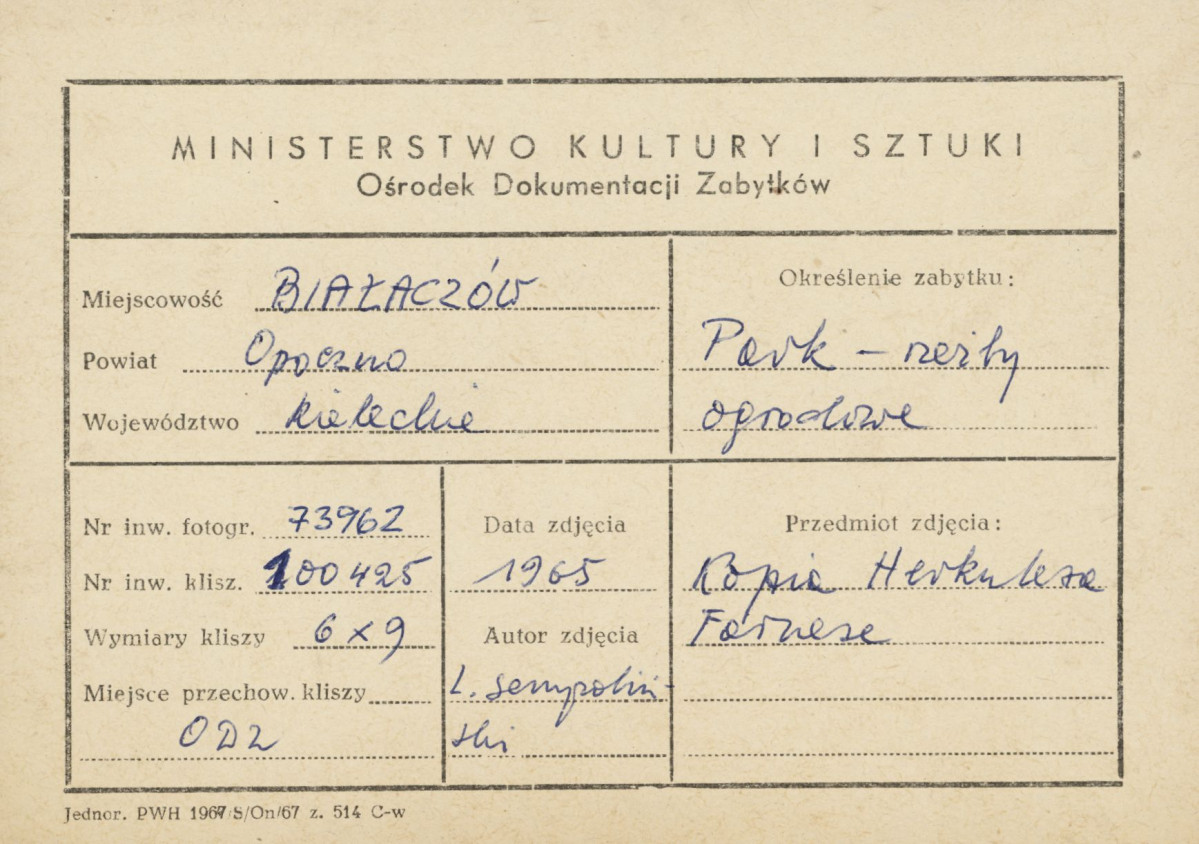 MINISTERSTWO KULTURY I SZTUKI
Ośrodek Dokumentacji Zabytków
Miejscowość BIAŁACZÓW
Powiat Opoczno
Województwo kieleckie
Określenie zabytku:
Park – rzeźby
ogrodowe
Nr inw. fotogr. 73962
Nr inw. klisz. 100425
Wymiary kliszy 6 x 9
Miejsce przechow. kliszy
ODZ
Data zdjęcia
1965
Autor zdjęcia
L. Sempoliń-
ski
Przedmiot zdjęcia:
Kopia Herkulesa
Farnese
Jednor. PWH 1967/S/On/67 z. 514 C-w